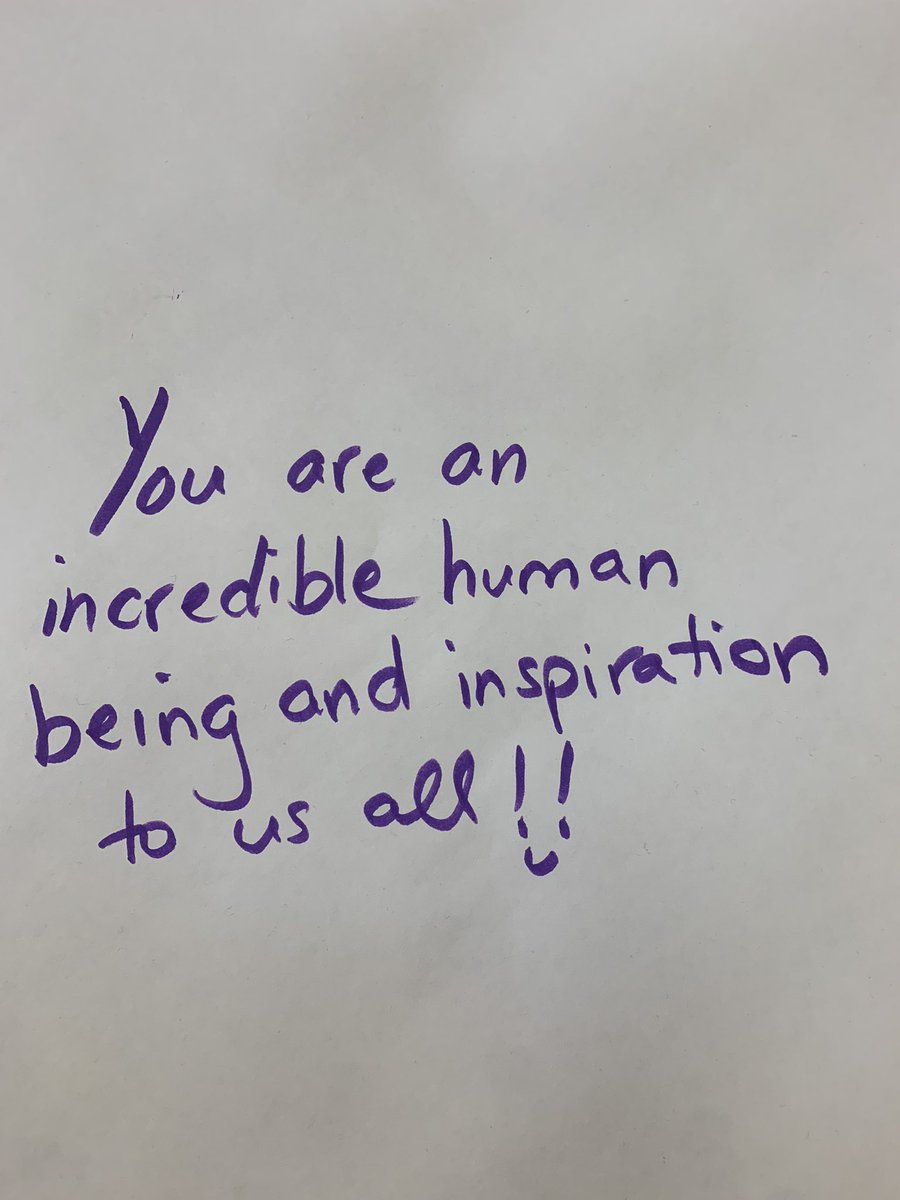 You are an
incredible human
being and inspiration
to us all!!